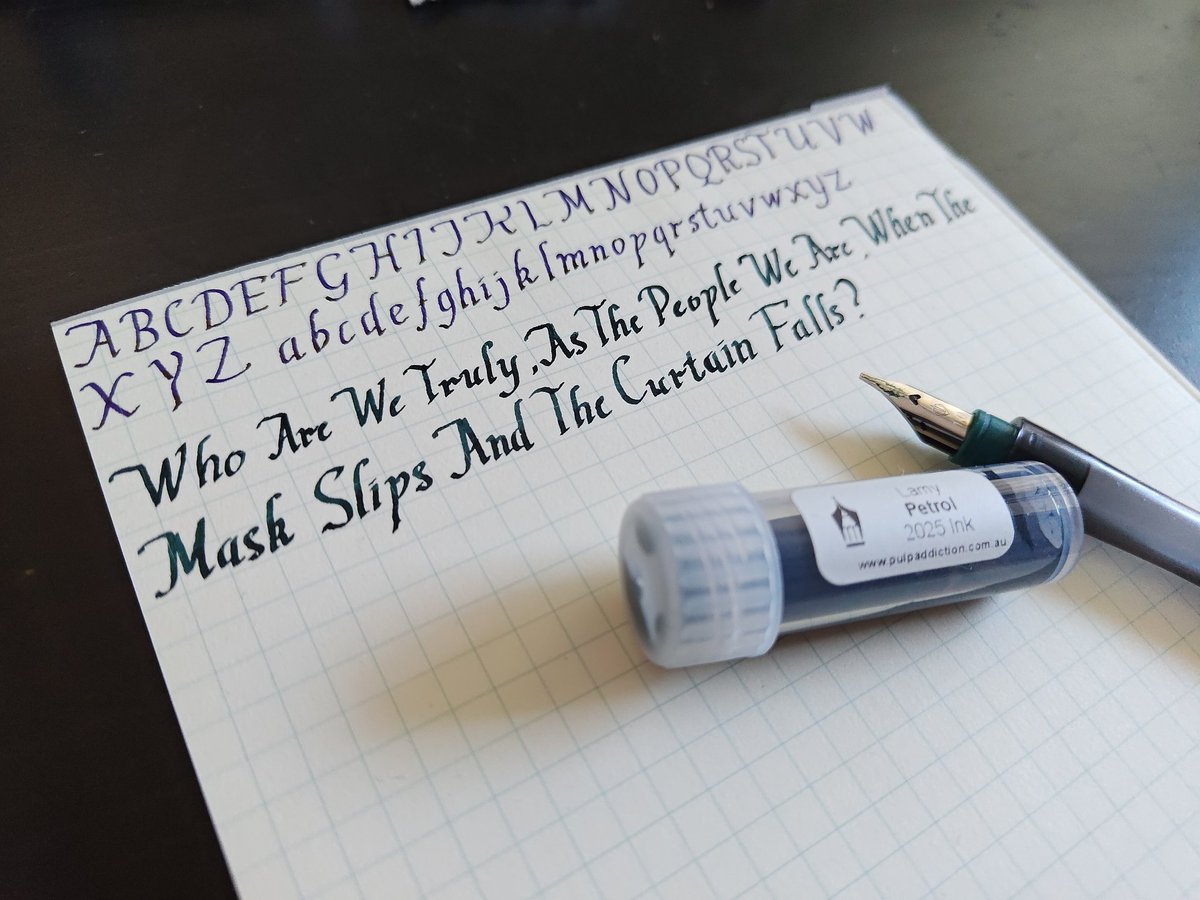 ABCDEFGHIJKLMNOPQRSTUVW
XYZ abcdefghijklmnopqrstuvwxyz
Who Are We Truly, As The People We Are, When The
Mask Slips And The Curtain Falls?
Lamy
Petrol
2025 Ink
www.pulpaddiction.com.au